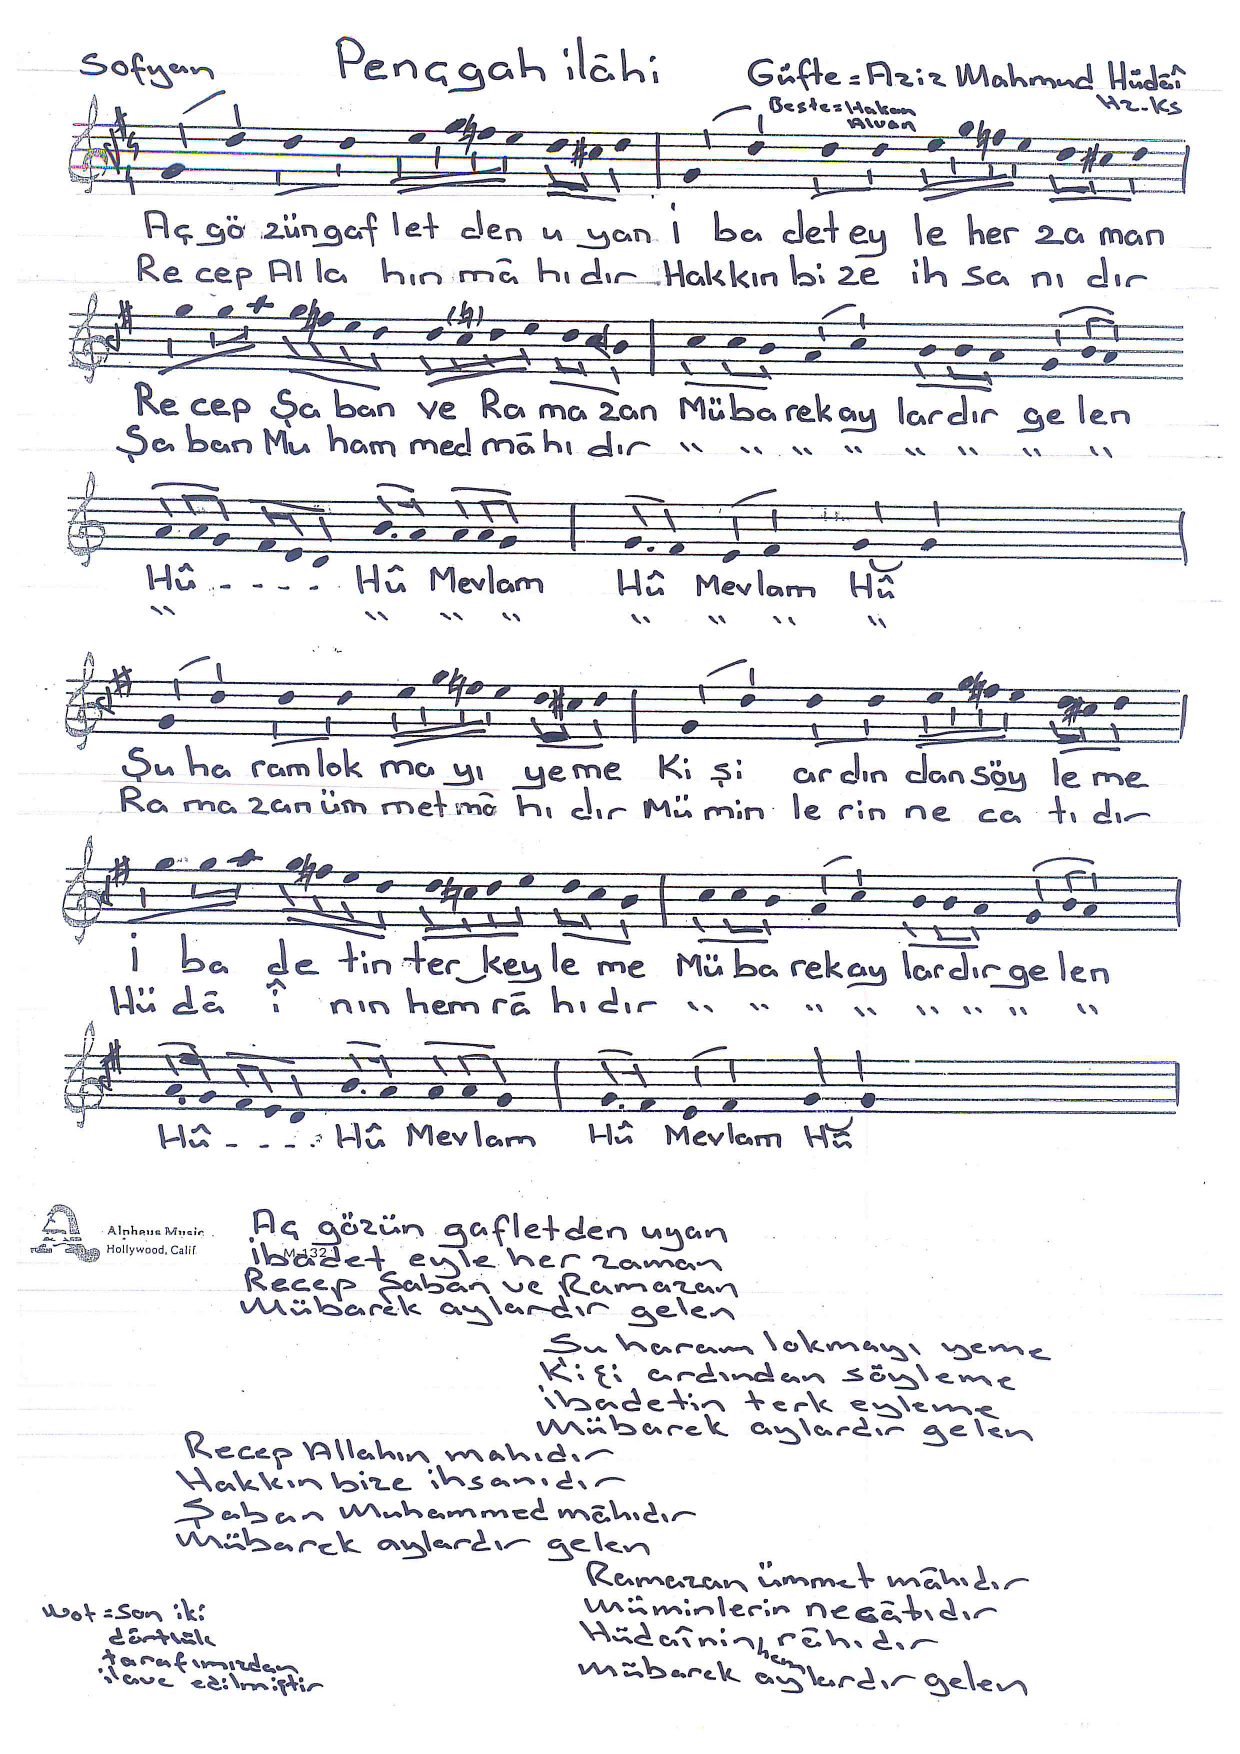 Sofyan
Pençgah ilâhi
Güfte = Aziz Mahmud Hüdâî
Hz. Ks
Beste = Hakan
Alvan
Aç gö zün gaf let den u yan İ ba det ey le her za man
Re cep Al la hın mâ hı dır Hakkın bi ze ih sa nı dır
Re cep Şa ban ve Ra ma zan Mübarek ay lardır ge len
Şa ban Mu ham med mâhı dır " " " " " " " "
Hû - - - - Hû Mevlam Hû Mevlam Hû
" " " " " " " "
Şu ha ram lok ma yı yeme Ki şi ardın dan söy le me
Ra ma zan üm met mâ hı dır Mü min le rin ne ca tı dır
İ ba de tin ter key le me Mü ba rek ay lardır ge len
Hü dâ î nın hem râ hı dır " " " " " " " "
Hû - - - - Hû Mevlam Hû Mevlam Hû
Alpheus Music
Hollywood, Calif
M-132
Aç gözün gafletden uyan
İbadet eyle her zaman
Recep Şaban ve Ramazan
Mübarek aylardır gelen
Şu haram lokmayı yeme
Kişi ardından söyleme
İbadetin terk eyleme
Mübarek aylardır gelen
Recep Allahın mahıdır
Hakkın bize ihsanıdır
Şaban Muhammed mâhıdır
Mübarek aylardır gelen
Ramazan ümmet mâhıdır
Müminlerin necâtıdır
Hüdaînin hem râhıdır
Mübarek aylardır gelen
Not = Son iki
dörtlük
tarafımızdan
ilave edilmiştir